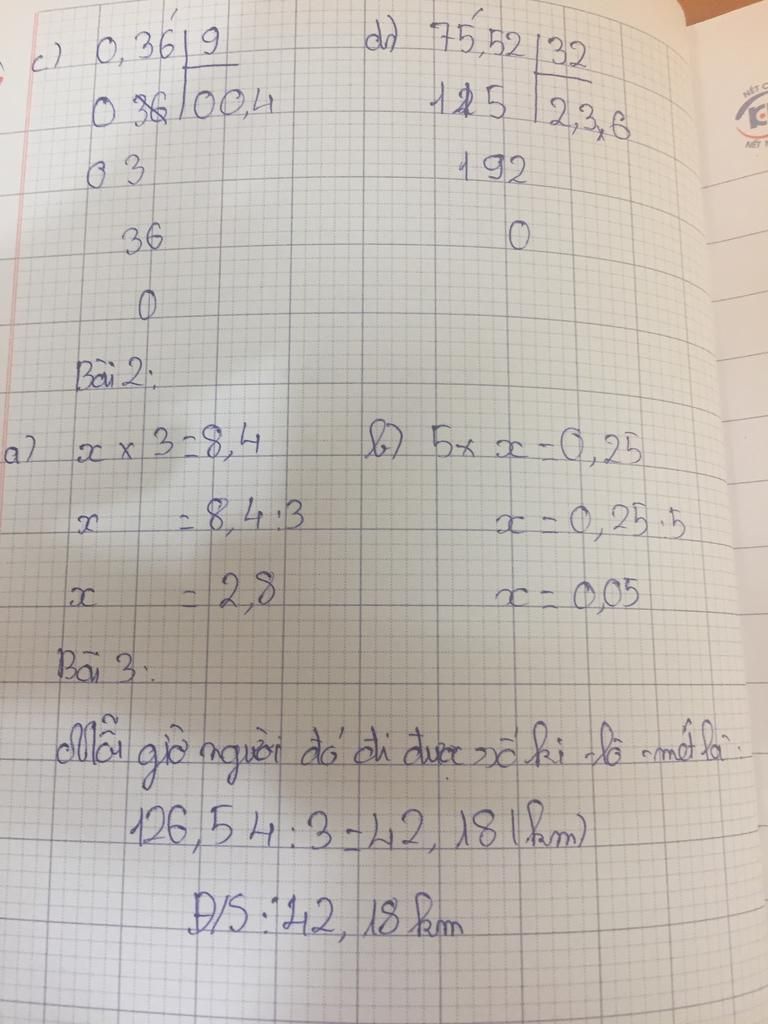 c) 0,36 9 d) 75,52 32
0 36 00,4 115 2,3,6
0 3 192
36 0
0
Bài 2:
a) x × 3 = 8,4 b) 5 × x = 0,25
x = 8,4 : 3 x = 0,25 : 5
x = 2,8 x = 0,05
Bài 3:
Mỗi giờ người đó đi được số ki - lô - mét là:
126,54 : 3 = 42,18 (km)
Đ/S : 42,18 km